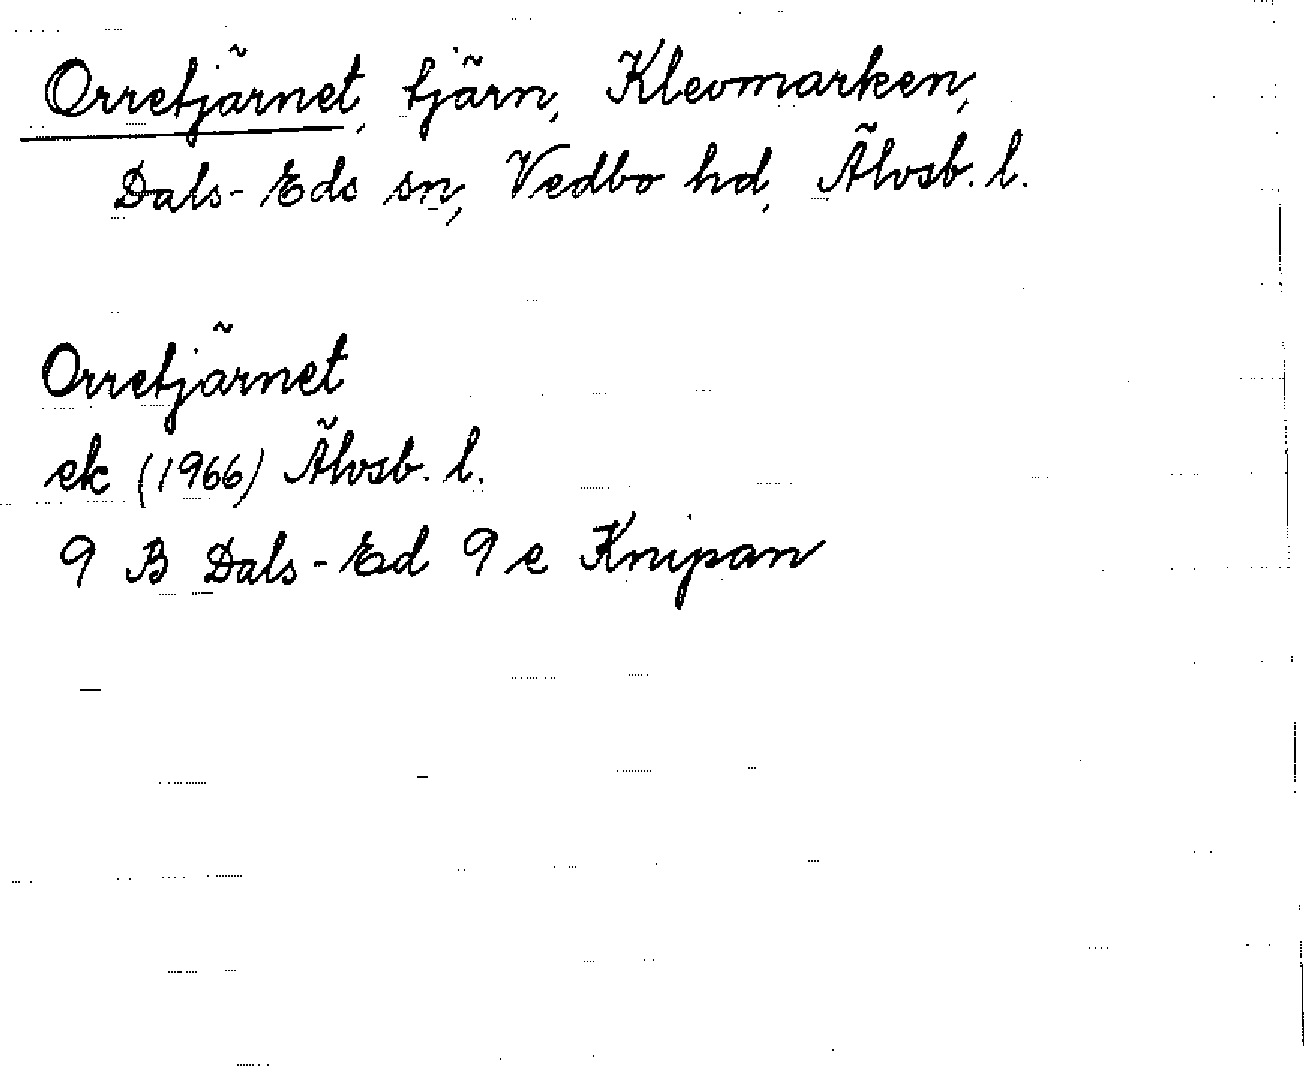 Orretjärnet, tjärn, Klevmarken,
Dals-Eds sn, Vedbo hd, Älvsb. l.
Orretjärnet
ek (1966) Älvsb. l.
9 B Dals-Ed 9 e Knipan